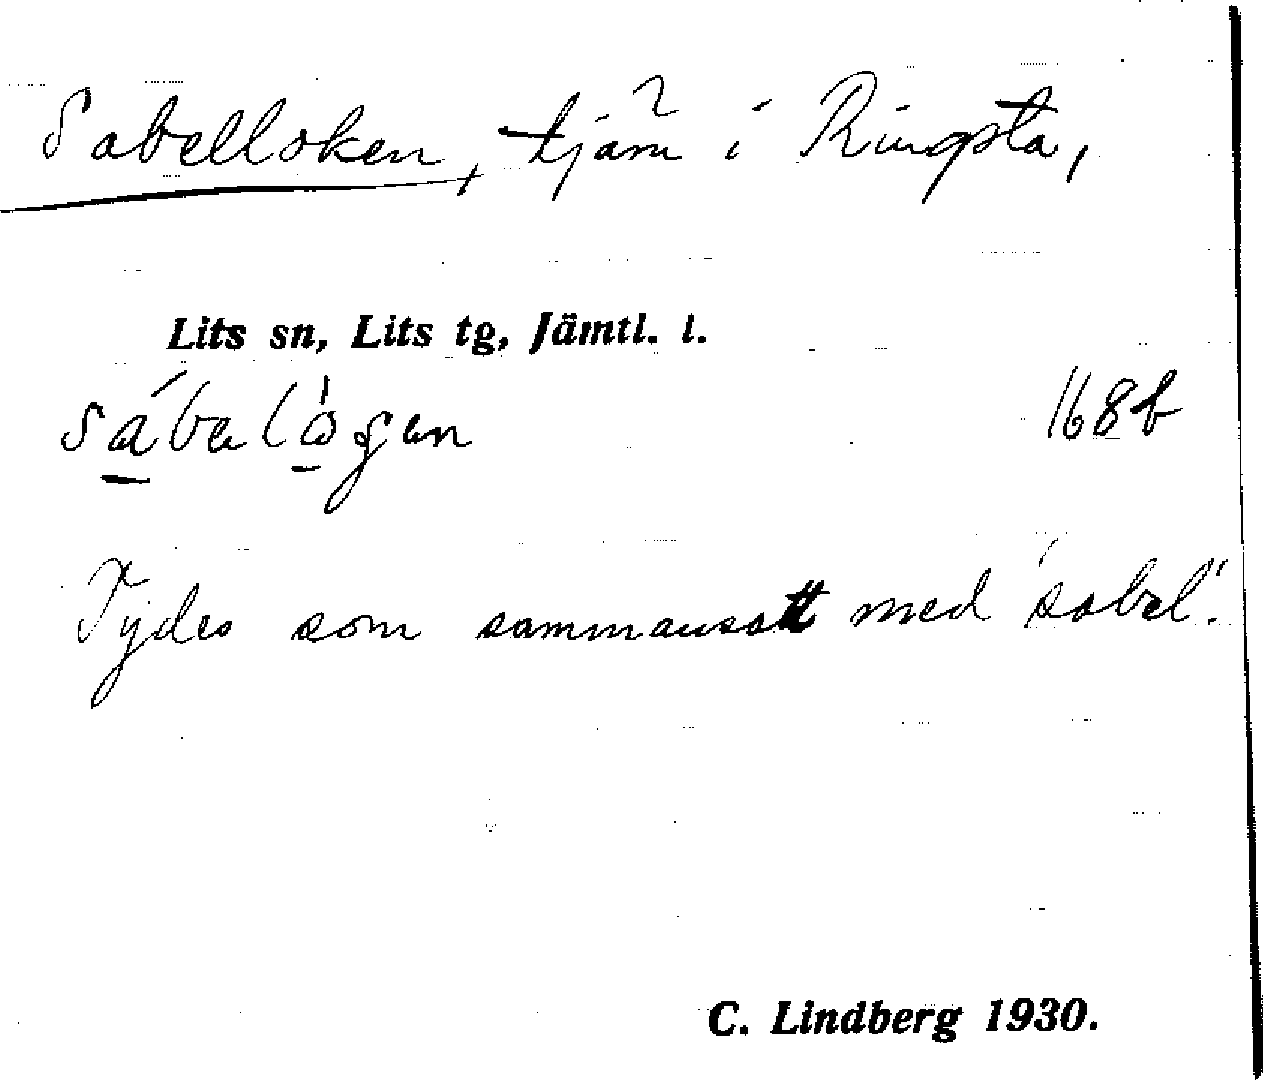 Sabelloken, tjärn i Ringsta,
Lits sn, Lits tg, Jämtl. l.
sábalògen 168b
Tydes som sammansatt med "sabel".
C. Lindberg 1930.